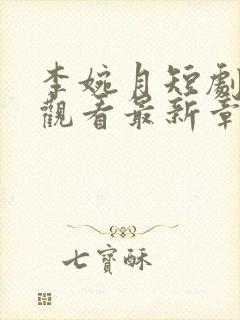 李婉月短劇
觀看最新章
七寶酥